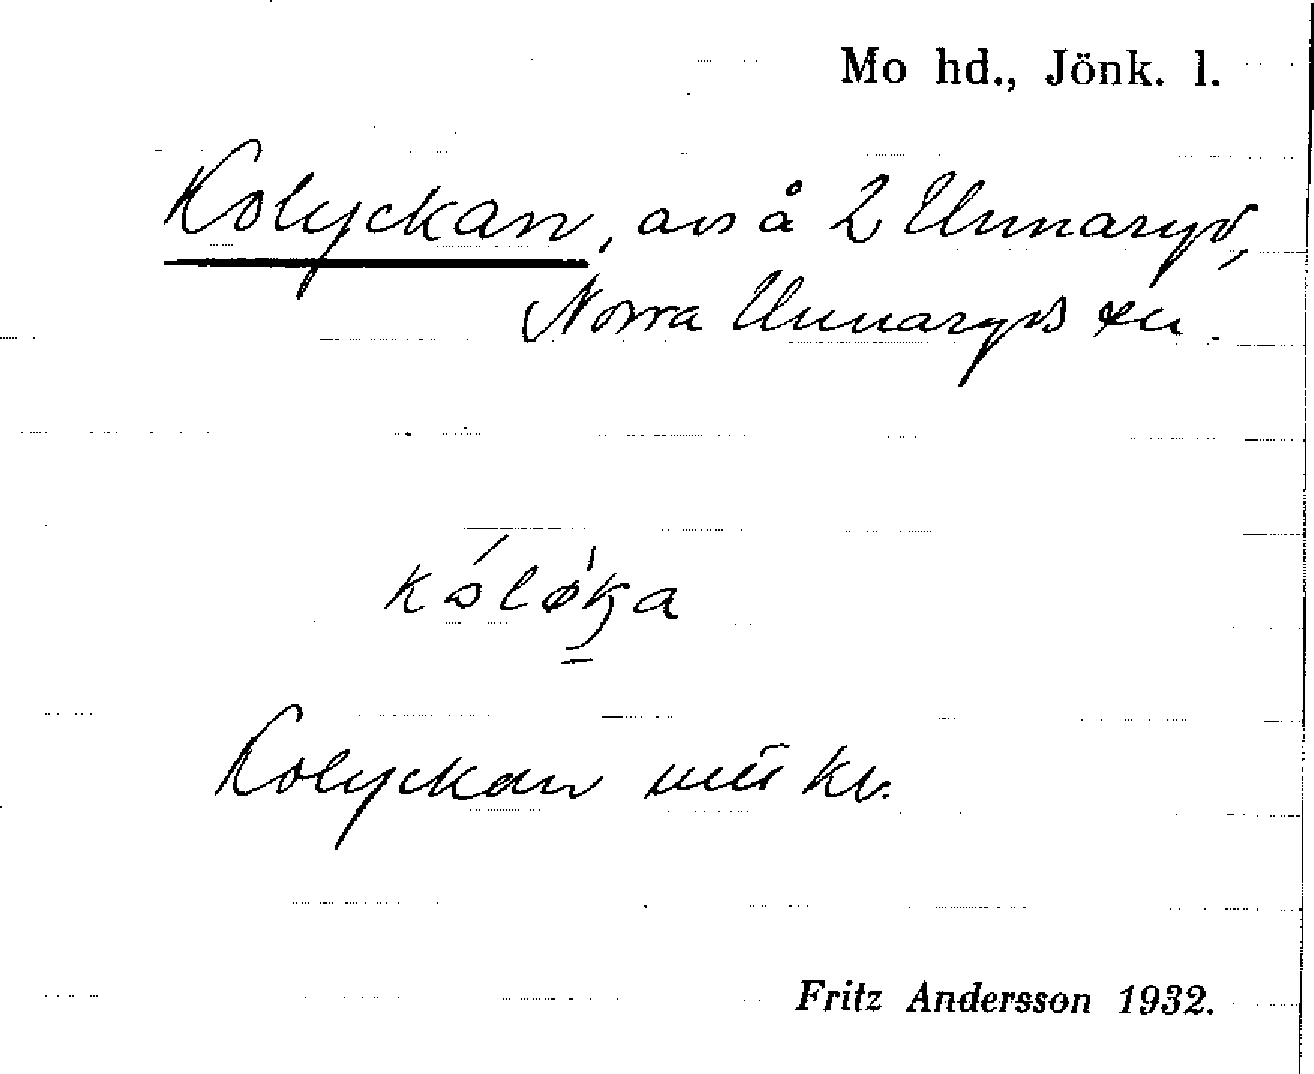 Mo hd., Jönk. l.
Kolyckan, avs å 2 Unnaryd,
Norra Unnaryds sn
kóløka
Kolyckan utsk kv.
Fritz Andersson 1932.